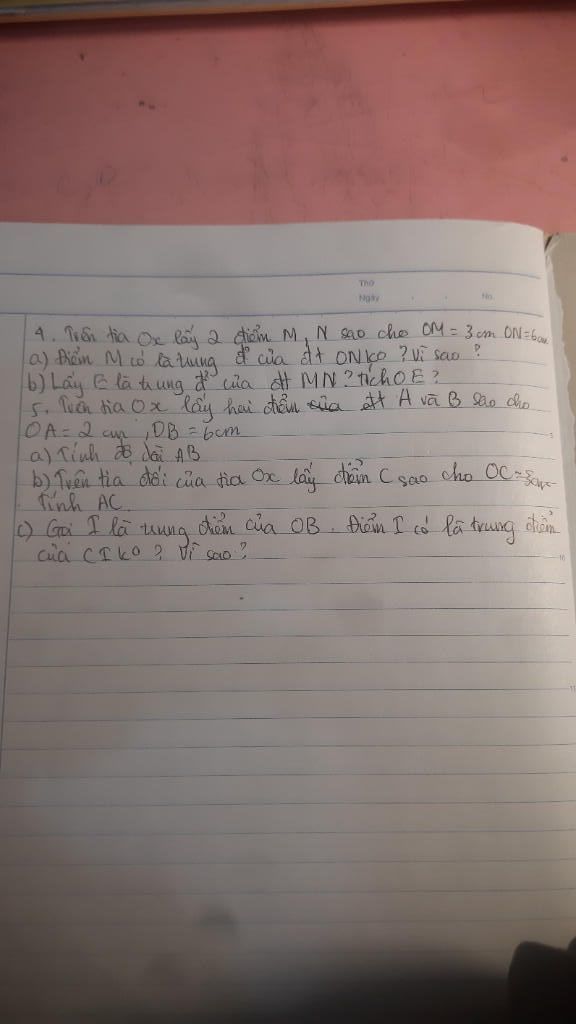 Thứ
Ngày . . No.
4. Trên tia Ox lấy 2 điểm M, N sao cho OM = 3cm ON = 6cm
a) Điểm M có là trung đ của đt ON ko ? Vì sao ?
b) Lấy E là trung đ của đt MN ? tích OE ?
5. Trên tia Ox lấy hai điểm của đt A và B sao cho
OA = 2 cm , OB = 6cm
a) Tính độ dài AB
b) Trên tia đối của tia Ox lấy điểm C sao cho OC =
Tính AC.
c) Gọi I là trung điểm của OB. Điểm I có là trung điểm
của CI ko ? Vì sao ?
10
11